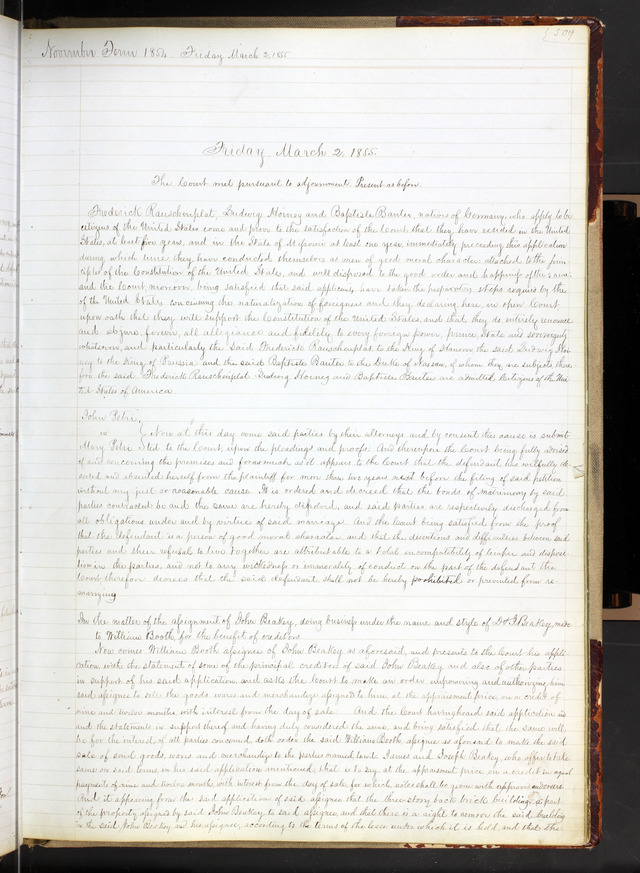 November Term 1854 Friday March 2, 1855
509
Friday March 2, 1855.
The Court met pursuant to adjournment. Present as before.
Frederick Rauschenplat, Ludwig Horney and Baptiste Banter, natives of Germany, who apply to be
citizens of the United States come and prove to the satisfaction of the Court that they have resided in the United
States, at least five years, and in the State of Missouri at least one year, immediately preceding this application
during which time they have conducted themselves as men of good moral character attached to the prin
ciples of the Constitution of the United States, and well disposed to the good order and happiness of the same
and the Court, moreover, being satisfied that said applicants have taken the preparatory steps required by the
of the United States concerning the naturalization of foreigners and they declaring here, in open Court
upon oath that they will support the Constitution of the United States, and that they do entirely renounce
and abjure, forever, all allegiance and fidelity to every foreign power, prince State and sovereignty
whatsoever, and particularly the said Frederick Rauschenplat to the King of Hanover the said Ludwig Hor
ney to the King of Prussia and the said Baptiste Banter to the Duke of Nassau, of whom they are subjects there
fore the said Frederick Rauschenplat Ludwig Horney and Baptiste Banter are admitted Citizens of the Uni
ted States of America
John Petri,
vs
Now at this day come said parties by their attorneys, and by consent the cause is submit
Mary Petri ted to the Court, upon the pleadings and proofs. And thereupon the Court being fully advised
of and concerning the premises and forasmuch as it appears to the Court that the defendant has willfully de
serted and absented herself from the plaintiff for more than two years next before the filing of said petition
without any just or reasonable cause. It is ordered and decreed that the bonds of matrimony by said
parties contracted be and the same are hereby dissolved, and said parties are respectively discharged from
all obligations under and by virtue of said marriage. And the Court being satisfied from the proof
that the defendant is a person of good moral character, and that the dissentions and difficulties between said
parties and their refusal to live together are attributable to a total incompatibility of temper and disposi
tion in the parties, and not to any wickedness or immorality of conduct on the part of the defendant the
Court therefore decrees that the said defendant shall not be hereby prohibited or prevented from re-
marrying
In the matter of the assignment of John Beakey, doing business under the name and style of D & J Beakey, made
to William Booth, for the benefit of creditors
Now comes William Booth assignee of John Beakey as aforesaid, and presents to the Court his appli
cation, with the statement of some of the principal creditors of said John Beakey and also of other parties
in support of his said application, and asks the Court to make an order empowering and authorizing him
said assignee to sell the goods, wares and merchandize assigned to him at the appraisement price, on a credit of
nine and twelve months with interest from the day of sale. And the Court having heard said application
and the statements in support thereof and having duly considered the same, and being satisfied that the same will
be for the interest of all parties concerned, doth order the said William Booth, assignee as aforesaid to make the said
sale of said goods, wares and merchandize to the parties named, to wit: James and Joseph Beakey, who offer to take
same on said terms, in his said application mentioned, that is to say at the appraisement price on a credit in equal
payments of nine and twelve months with interest from the day of sale, for which notes shall be given with approved endorsers.
And it appearing from the said application of said assignee that the three-story back brick building is part
of the property assigned by said John Beakey, to said assignee, and that there is a right to remove the said building
in the said John Beakey and his assignee, according to the terms of the lease under which it is held, and that the